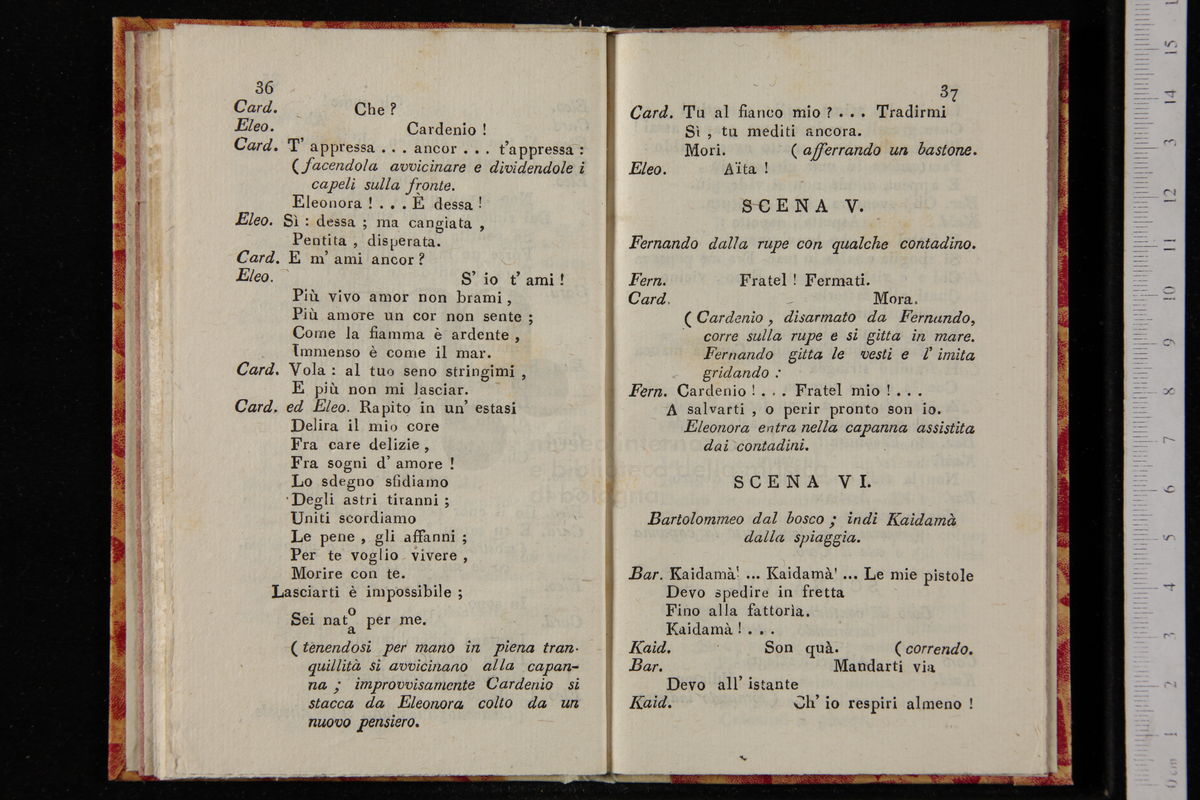 36
Card. Che ?
Eleo. Cardenio !
Card. T' appressa . . . ancor . . . t'appressa :
( facendola avvicinare e dividendole i
capeli sulla fronte.
Eleonora ! . . . È dessa !
Eleo. Sì : dessa ; ma cangiata ,
Pentita , disperata.
Card. E m' ami ancor ?
Eleo. S' io t' ami !
Più vivo amor non brami ,
Più amore un cor non sente ;
Come la fiamma è ardente ,
Immenso è come il mar.
Card. Vola : al tuo seno stringimi ,
E più non mi lasciar.
Card. ed Eleo. Rapito in un' estasi
Delira il mio core
Fra care delizie ,
Fra sogni d' amore !
Lo sdegno sfidiamo
Degli astri tiranni ;
Uniti scordiamo
Le pene , gli affanni ;
Per te voglio vivere ,
Morire con te.
Lasciarti è impossibile ;
o
Sei nat per me.
a
( tenendosi per mano in piena tran-
quillità si avvicinano alla capan-
na ; improvvisamente Cardenio si
stacca da Eleonora colto da un
nuovo pensiero.
37
Card. Tu al fianco mio ? . . . Tradirmi
Sì , tu mediti ancora.
Mori. ( afferrando un bastone.
Eleo. Aïta !
SCENA V.
Fernando dalla rupe con qualche contadino.
Fern. Fratel ! Fermati.
Card. Mora.
( Cardenio , disarmato da Fernando,
corre sulla rupe e si gitta in mare.
Fernando gitta le vesti e l' imita
gridando :
Fern. Cardenio ! . . . Fratel mio ! . . .
A salvarti , o perir pronto son io.
Eleonora entra nella capanna assistita
dai contadini.
SCENA VI.
Bartolommeo dal bosco ; indi Kaidamà
dalla spiaggia.
Bar. Kaidamà! ... Kaidamà! ... Le mie pistole
Devo spedire in fretta
Fino alla fattoria.
Kaidamà ! . . .
Kaid. Son quà. ( correndo.
Bar. Mandarti via
Devo all' istante
Kaid. Ch' io respiri almeno !
museo internazionale
e biblioteca della musica
di bologna
0 cm 1 2 3 4 5 6 7 8 9 10 11 12 13 14 15